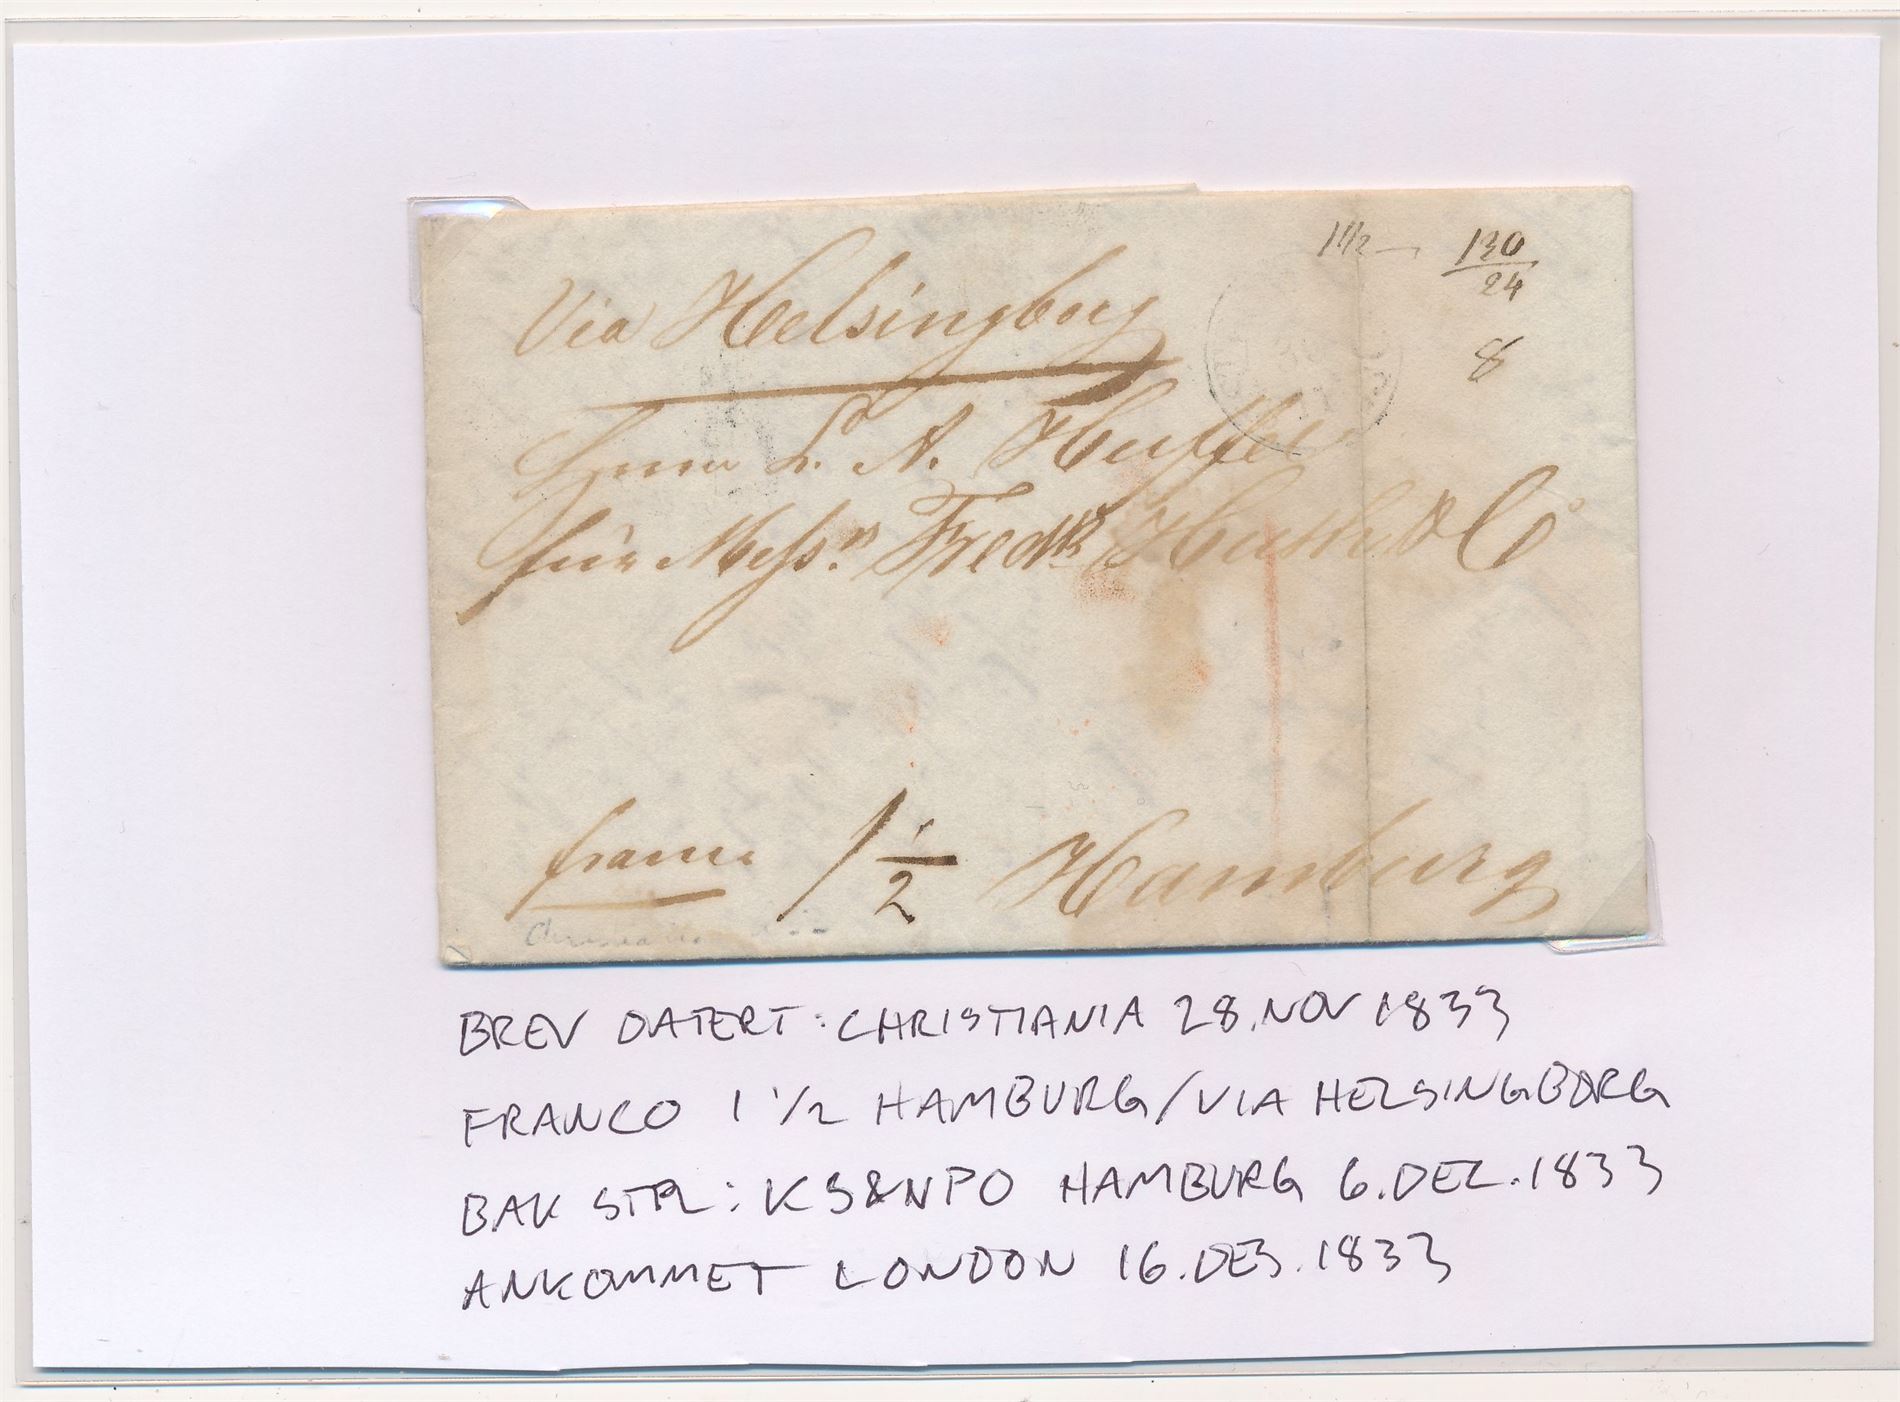 Via Helsingborg
1 1/2 —
130
24
8
Herrn L. A. Huffel
für Messrs Fredk Huth & Co
franco 1 1/2 Hamburg
BREV DATERT: CHRISTIANIA 28. NOV 1833
FRANCO 1 1/2 HAMBURG/VIA HELSINGBORG
BAK STPL: K S&NPO HAMBURG 6. DEZ. 1833
ANKOMMET LONDON 16. DES. 1833